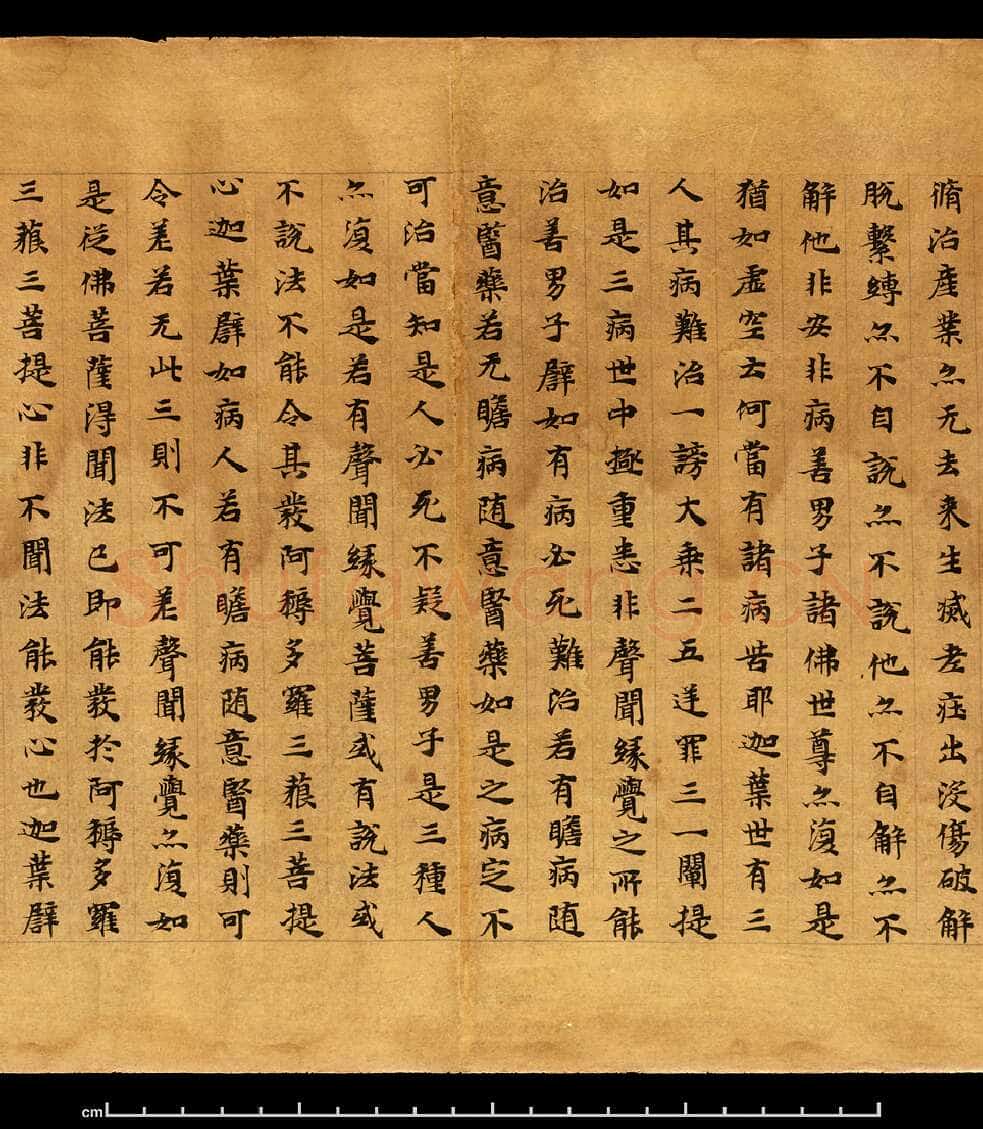 脩治產業亦无去来生滅老壯出没傷破解
脫繫縛亦不自説亦不説他亦不自解亦不
解他非安非病善男子諸佛世尊亦復如是
猶如虛空云何當有諸病苦耶迦葉世有三
人其病難治一謗大乘二五逆罪三一闡提
如是三病世中極重悉非聲聞緣覺之所能
治善男子譬如有病必死難治若有瞻病随
意醫藥若无瞻病随意醫藥如是之病定不
可治當知是人必死不疑善男子是三種人
亦復如是若有聲聞緣覺菩薩或有説法或
不説法不能令其發阿耨多羅三藐三菩提
心迦葉譬如病人若有瞻病随意醫藥則可
令差若无此三則不可差聲聞緣覺亦復如
是從佛菩薩得聞法已即能發於阿耨多羅
三藐三菩提心非不聞法能發心也迦葉譬
Shufawang.CN
cm